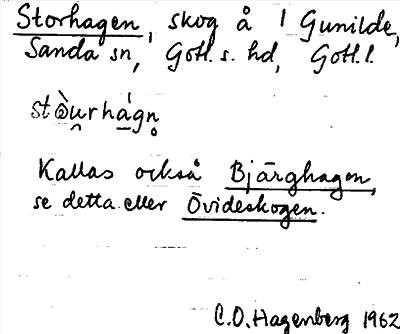 Storhagen, skog å 1 Gunilde,
Sanda sn, Gotl. s. hd, Gotl. l.
stòu̯rhágn̥
Kallas också Bjärghagen,
se detta eller Övideskogen.
C.O. Hagenberg 1962